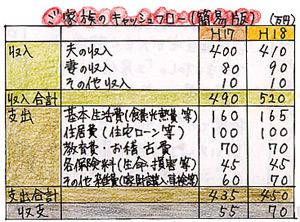 ご家族のキャッシュフロー(簡易版) (万円)
H17 H18
収入 夫の収入 400 410
妻の収入 80 90
その他収入 10 10
収入合計 490 520
支出 基本生活費(食費光熱費等) 160 165
住居費(住宅ローン等) 100 100
教育費・お稽古費 70 70
各保険料(生命・損害等) 45 45
その他雑費(家財購入車検等) 60 70
支出合計 435 450
収支 55 70